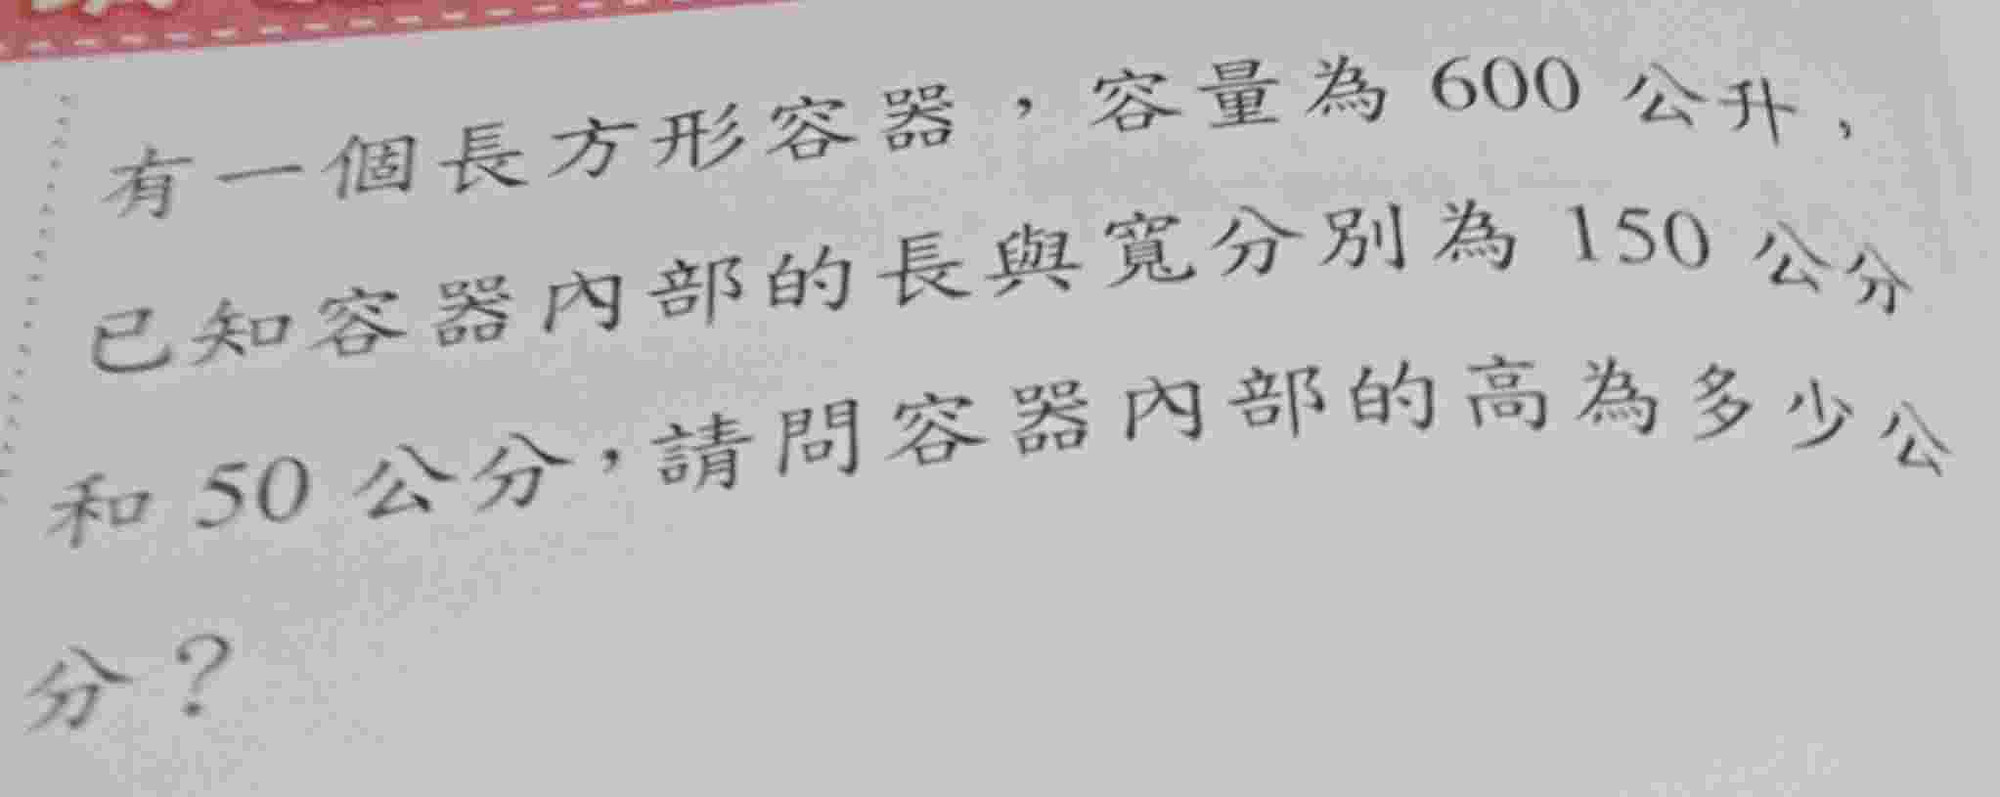 有一個長方形容器，容量為 600 公升，
已知容器內部的長與寬分別為 150 公分
和 50 公分，請問容器內部的高為多少公
分？